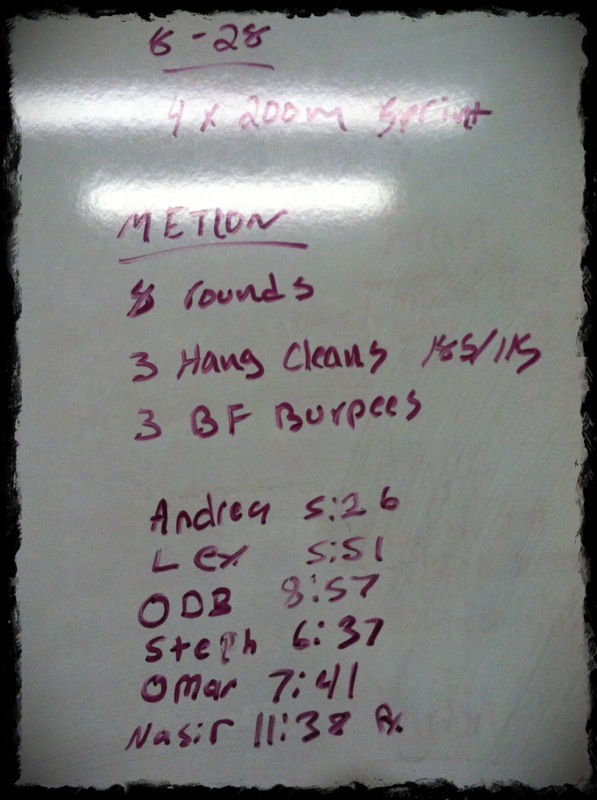 8-28
4 x 200m Sprint
METCON
8 rounds
3 Hang Cleans 185/115
3 BF Burpees
Andrea 5:26
Lex 5:51
ODB 8:57
Steph 6:37
Omar 7:41
Nasir 11:38 Rx